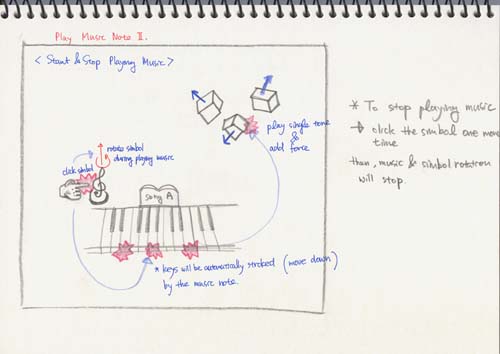 Play Music Note II.
< Start & Stop Playing Music >
rotate simbol
during playing music
click simbol
play single tone
&
add force
song A
* keys will be automatically stroked (move down)
by the music note.
* To stop playing music
→ click the simbol one more
time
than, music & simbol rotation
will stop.